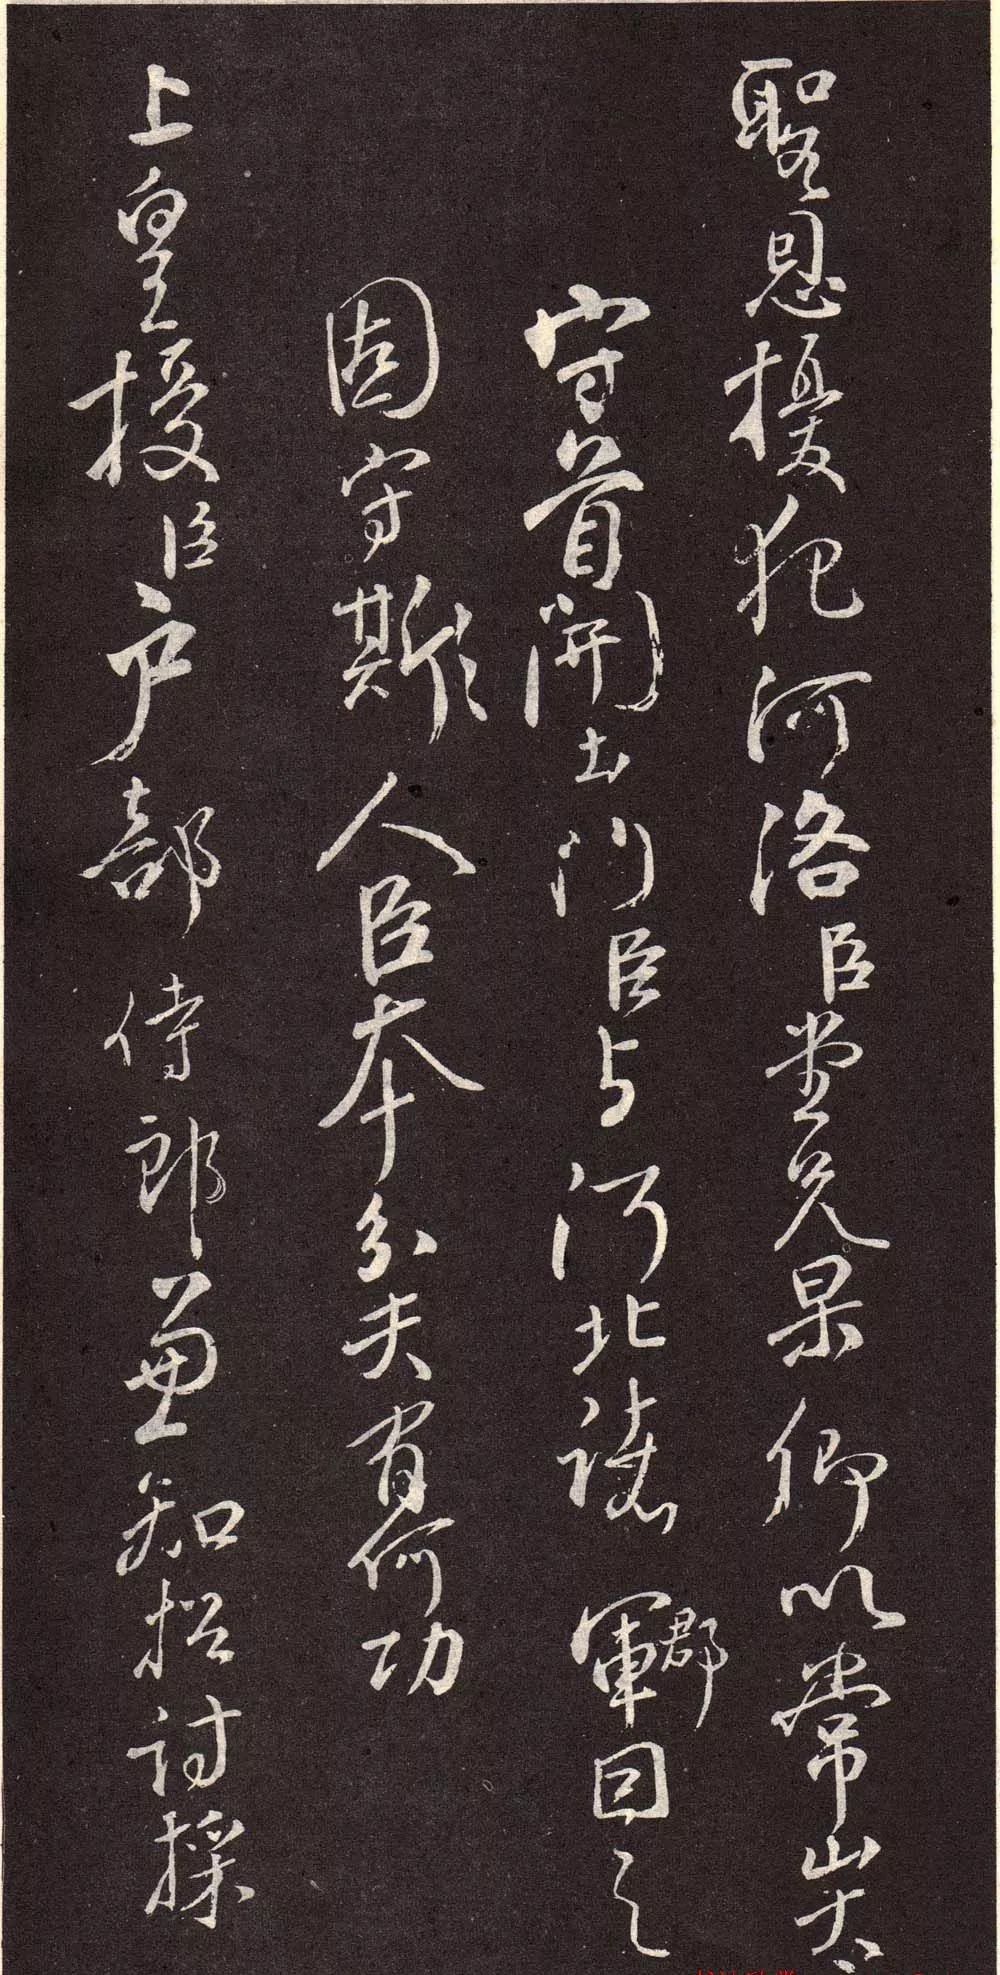 聖恩擾犯河洛臣堂兄杲卿以常山太
守首開土門臣与河北諸軍郡因之
固守斯人臣本分夫有何功
上皇授臣户部侍郎兼知招討採